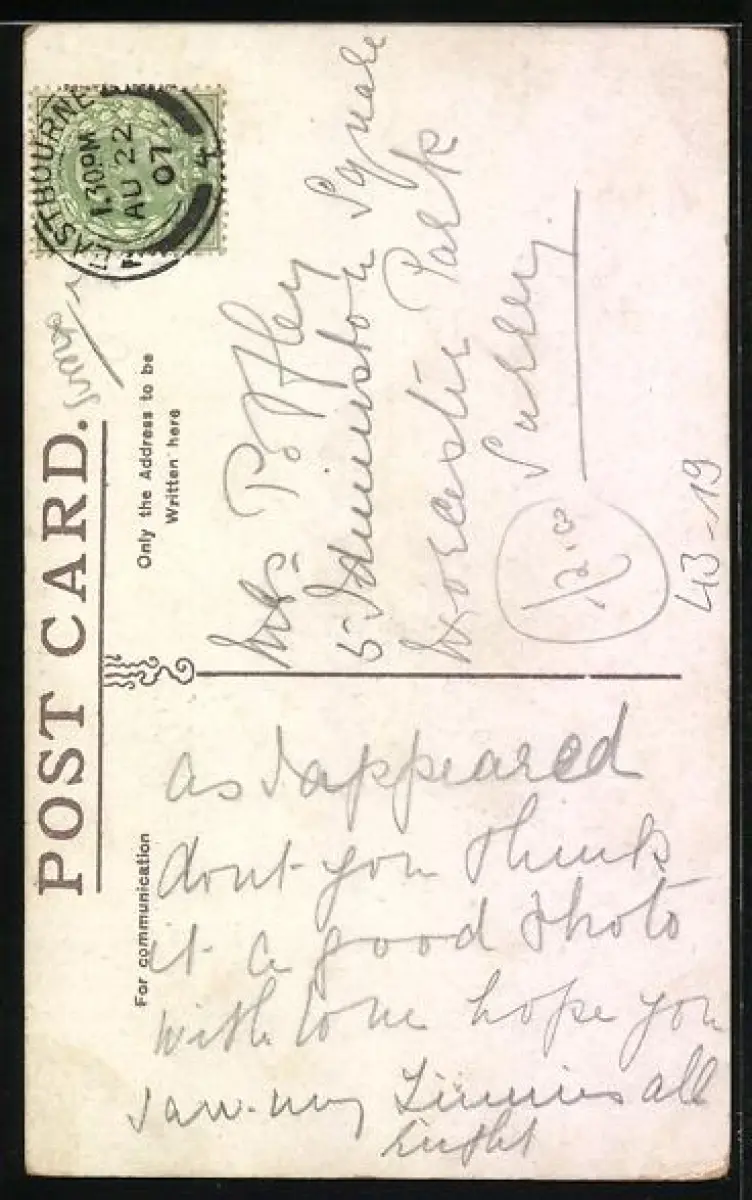 POST CARD.
For communication
Only the Address to be
Written here
EASTBOURNE
1.30PM
AU 22
07
4
as I appeared
dont you think
it a good Photo
with love hope you
saw my all
right
Mrs
5 Square
Worcester Park
Surrey.
43-19